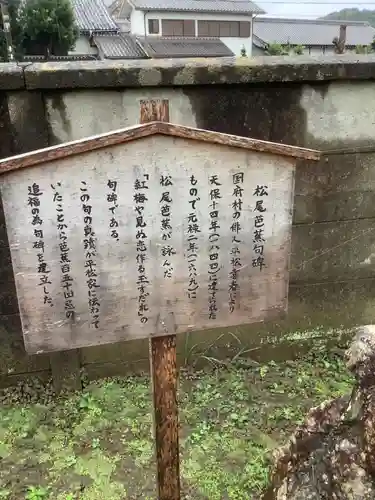 松尾芭蕉句碑
国府村の俳人平松喜春により
天保十四年(一八四四)に建られた
もので、元禄二年(一六八九)に
松尾芭蕉が詠んだ
「紅梅や見ぬ恋作る玉すだれ」の
句碑である。
この句の真蹟が平松家に伝わって
いたことから芭蕉百五十回忌の
追福の為句碑を建立した。